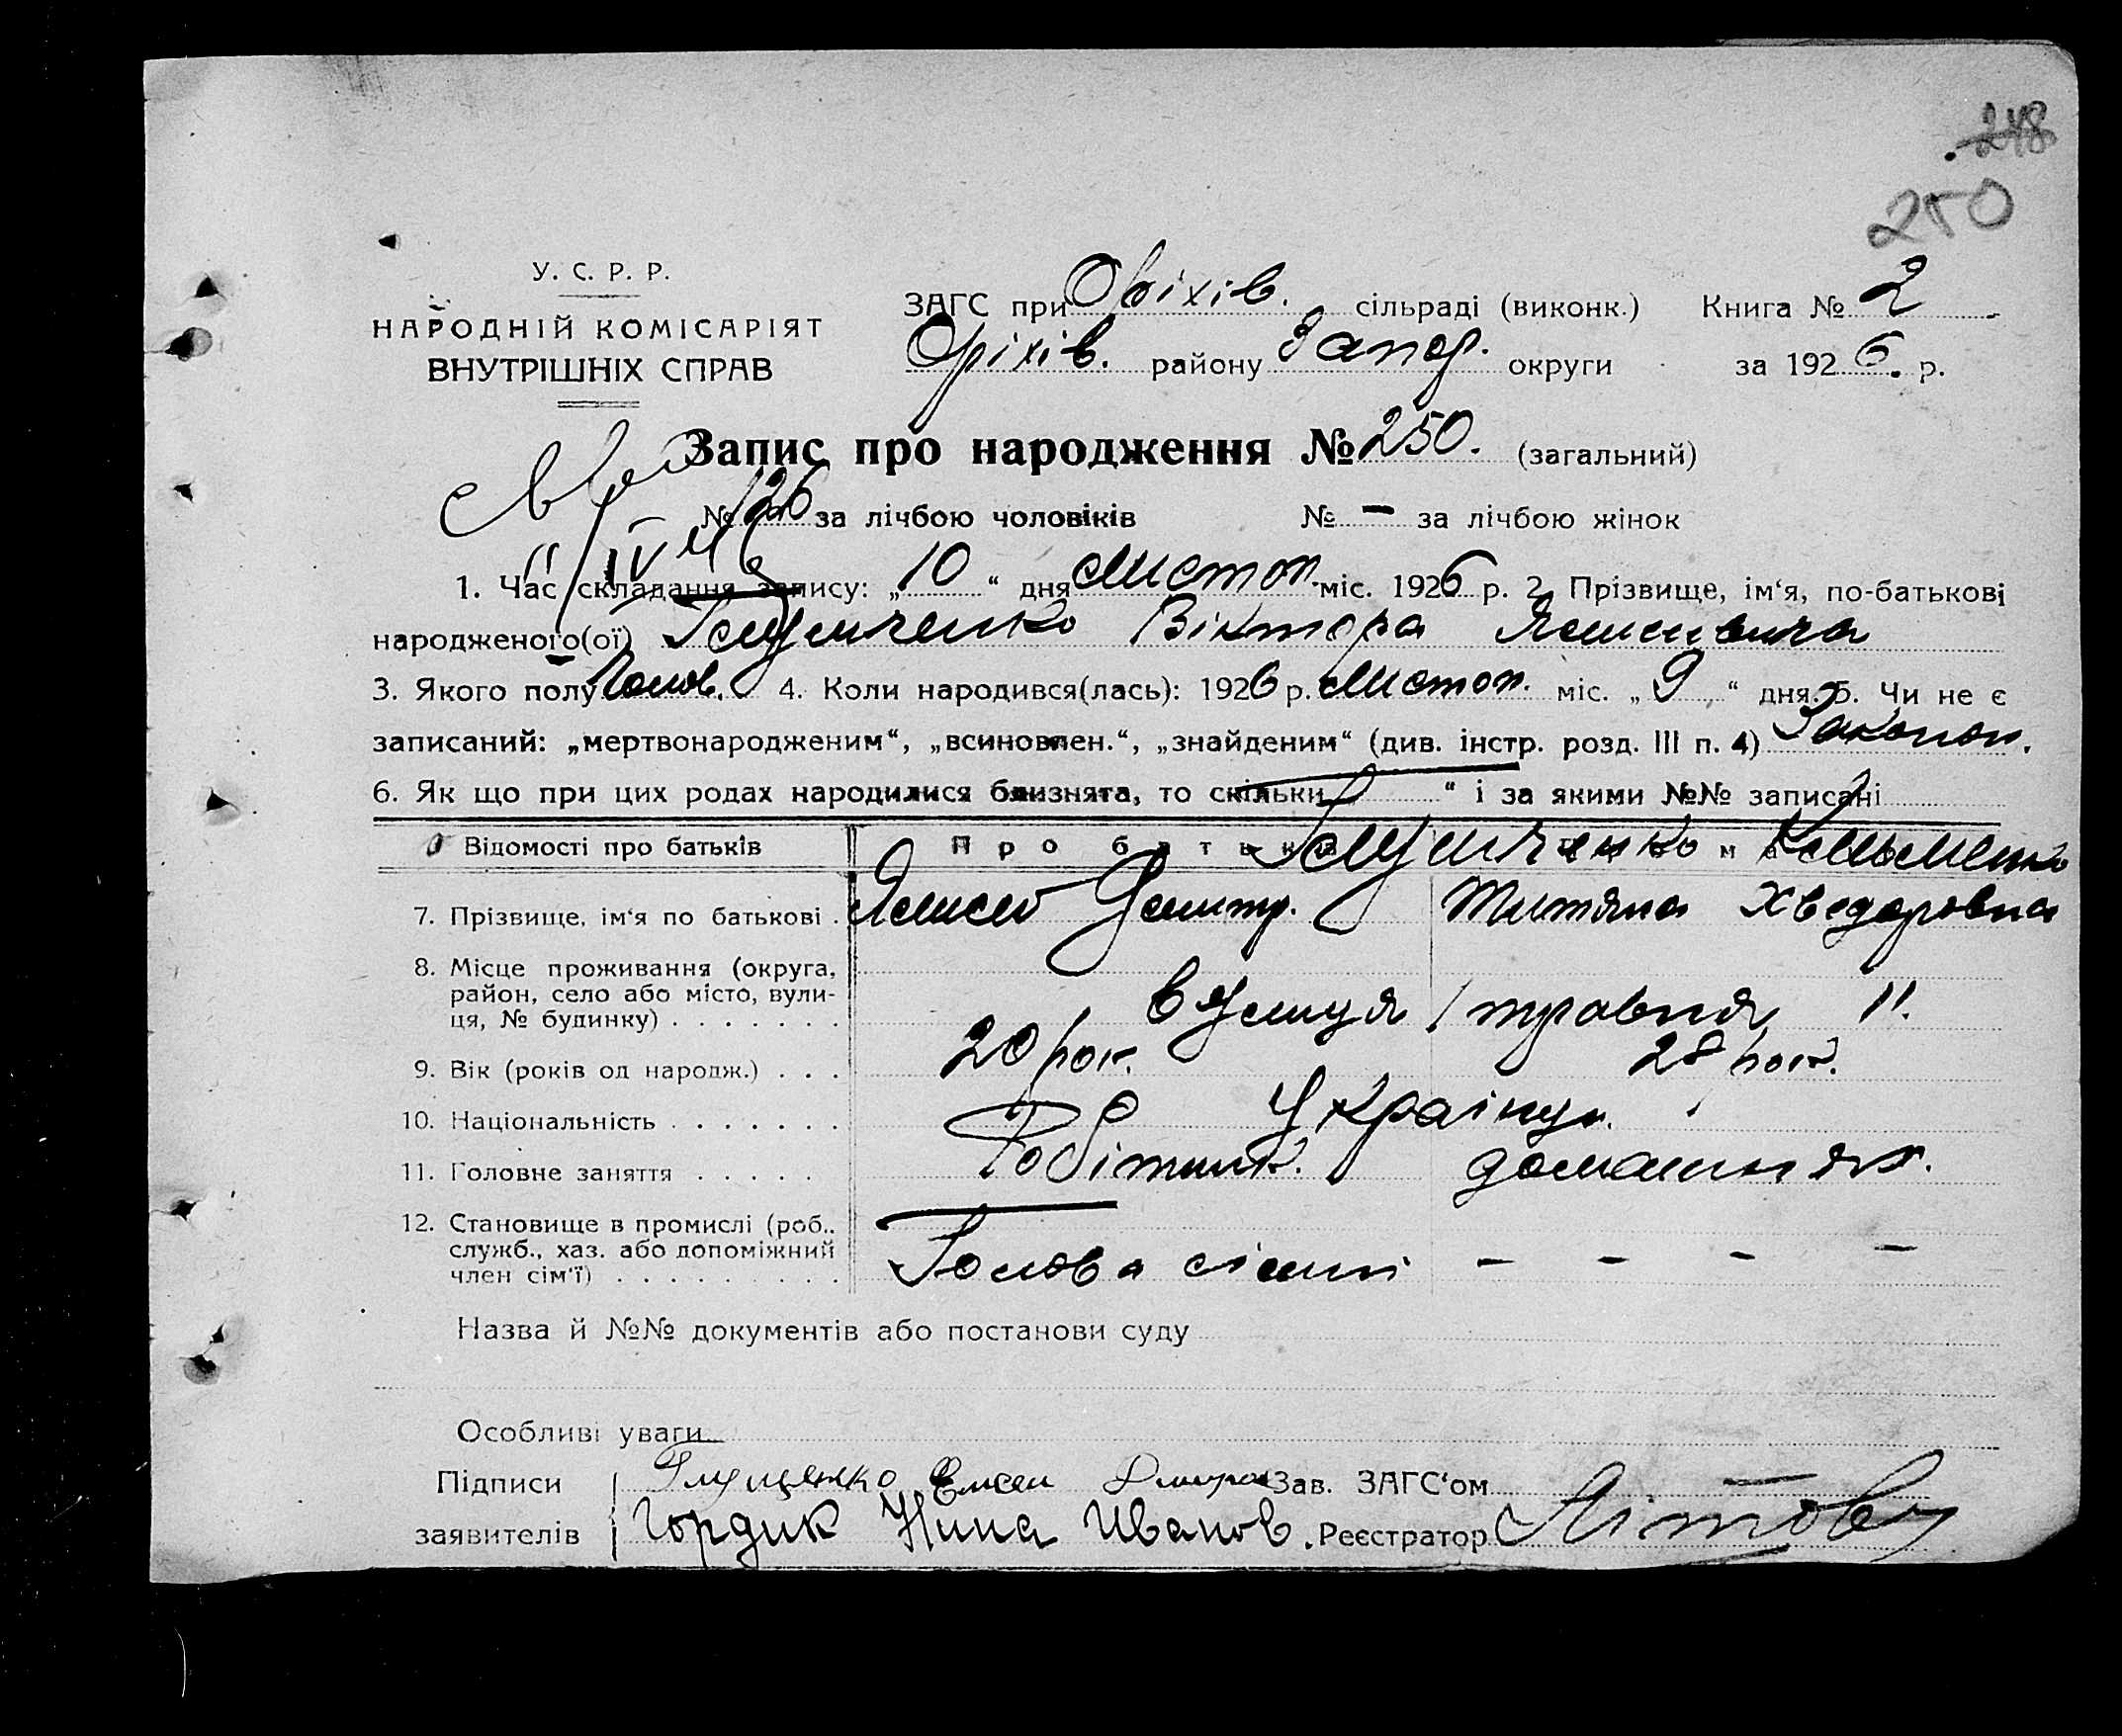 248
250
У. С. Р. Р.
НАРОДНІЙ КОМІСАРІЯТ
ВНУТРІШНІХ СПРАВ
ЗАГС при Оріхів. сільраді (виконк.) Книга № 2
Оріхів. району Запор. округи за 1926. р.
Запис про народження № 250. (загальний)
№ 126 за лічбою чоловіків № — за лічбою жінок
1. Час складання запису: „ 10 “ дня листоп. міс. 1926 р. 2. Прізвище, ім‘я, по-батькові
народженого(ої) Віктора
3. Якого полу Чолов. 4. Коли народився(лась): 1926 р. листоп. міс. „ 9 “ дня. 5. Чи не є
записаний: „мертвонародженим“, „всиновлен.“, „знайденим“ (див. інстр. розд. III п. 4)
6. Як що при цих родах народилися близнята, то скільки “ і за якими №№ записані
Відомості про батьків Про батька
7. Прізвище, ім‘я по батькові . Дмитр. Титяна Хведоровна
8. Місце проживання (округа,
район, село або місто, вули-
ця, № будинку) . . . . . . . вулиця 1 травня 11.
9. Вік (років од народж.) . . . 20 рок. 28 рок.
10. Національність . . . . . . . Українц.
11. Головне заняття . . . . . Робітник. домашня
12. Становище в промислі (роб..
служб., хаз. або допоміжний
член сім‘ї) . . . . . . . . . Голова сімьї — — — —
Назва й №№ документів або постанови суду
Особливі уваги
Підписи Глущенко Елисей Зав. ЗАГС‘ом
заявителів Гордик Нина Иванов. Реєстратор